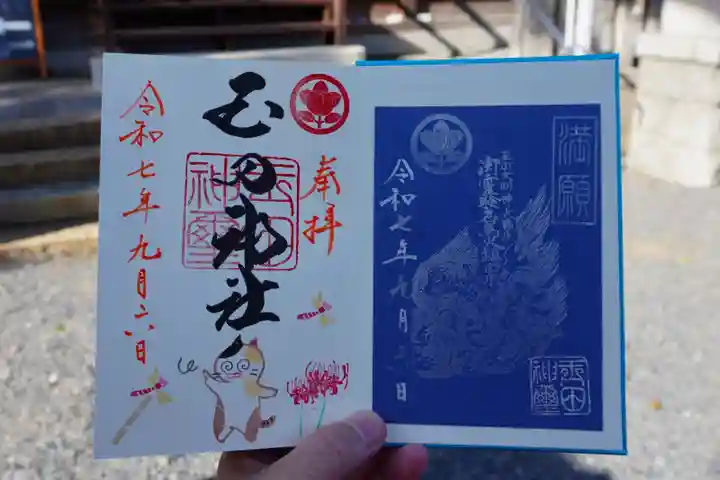 奉拝
玉田神社
玉田神璽
令和七年九月六日
満願
令和七年九月六日
玉田神璽